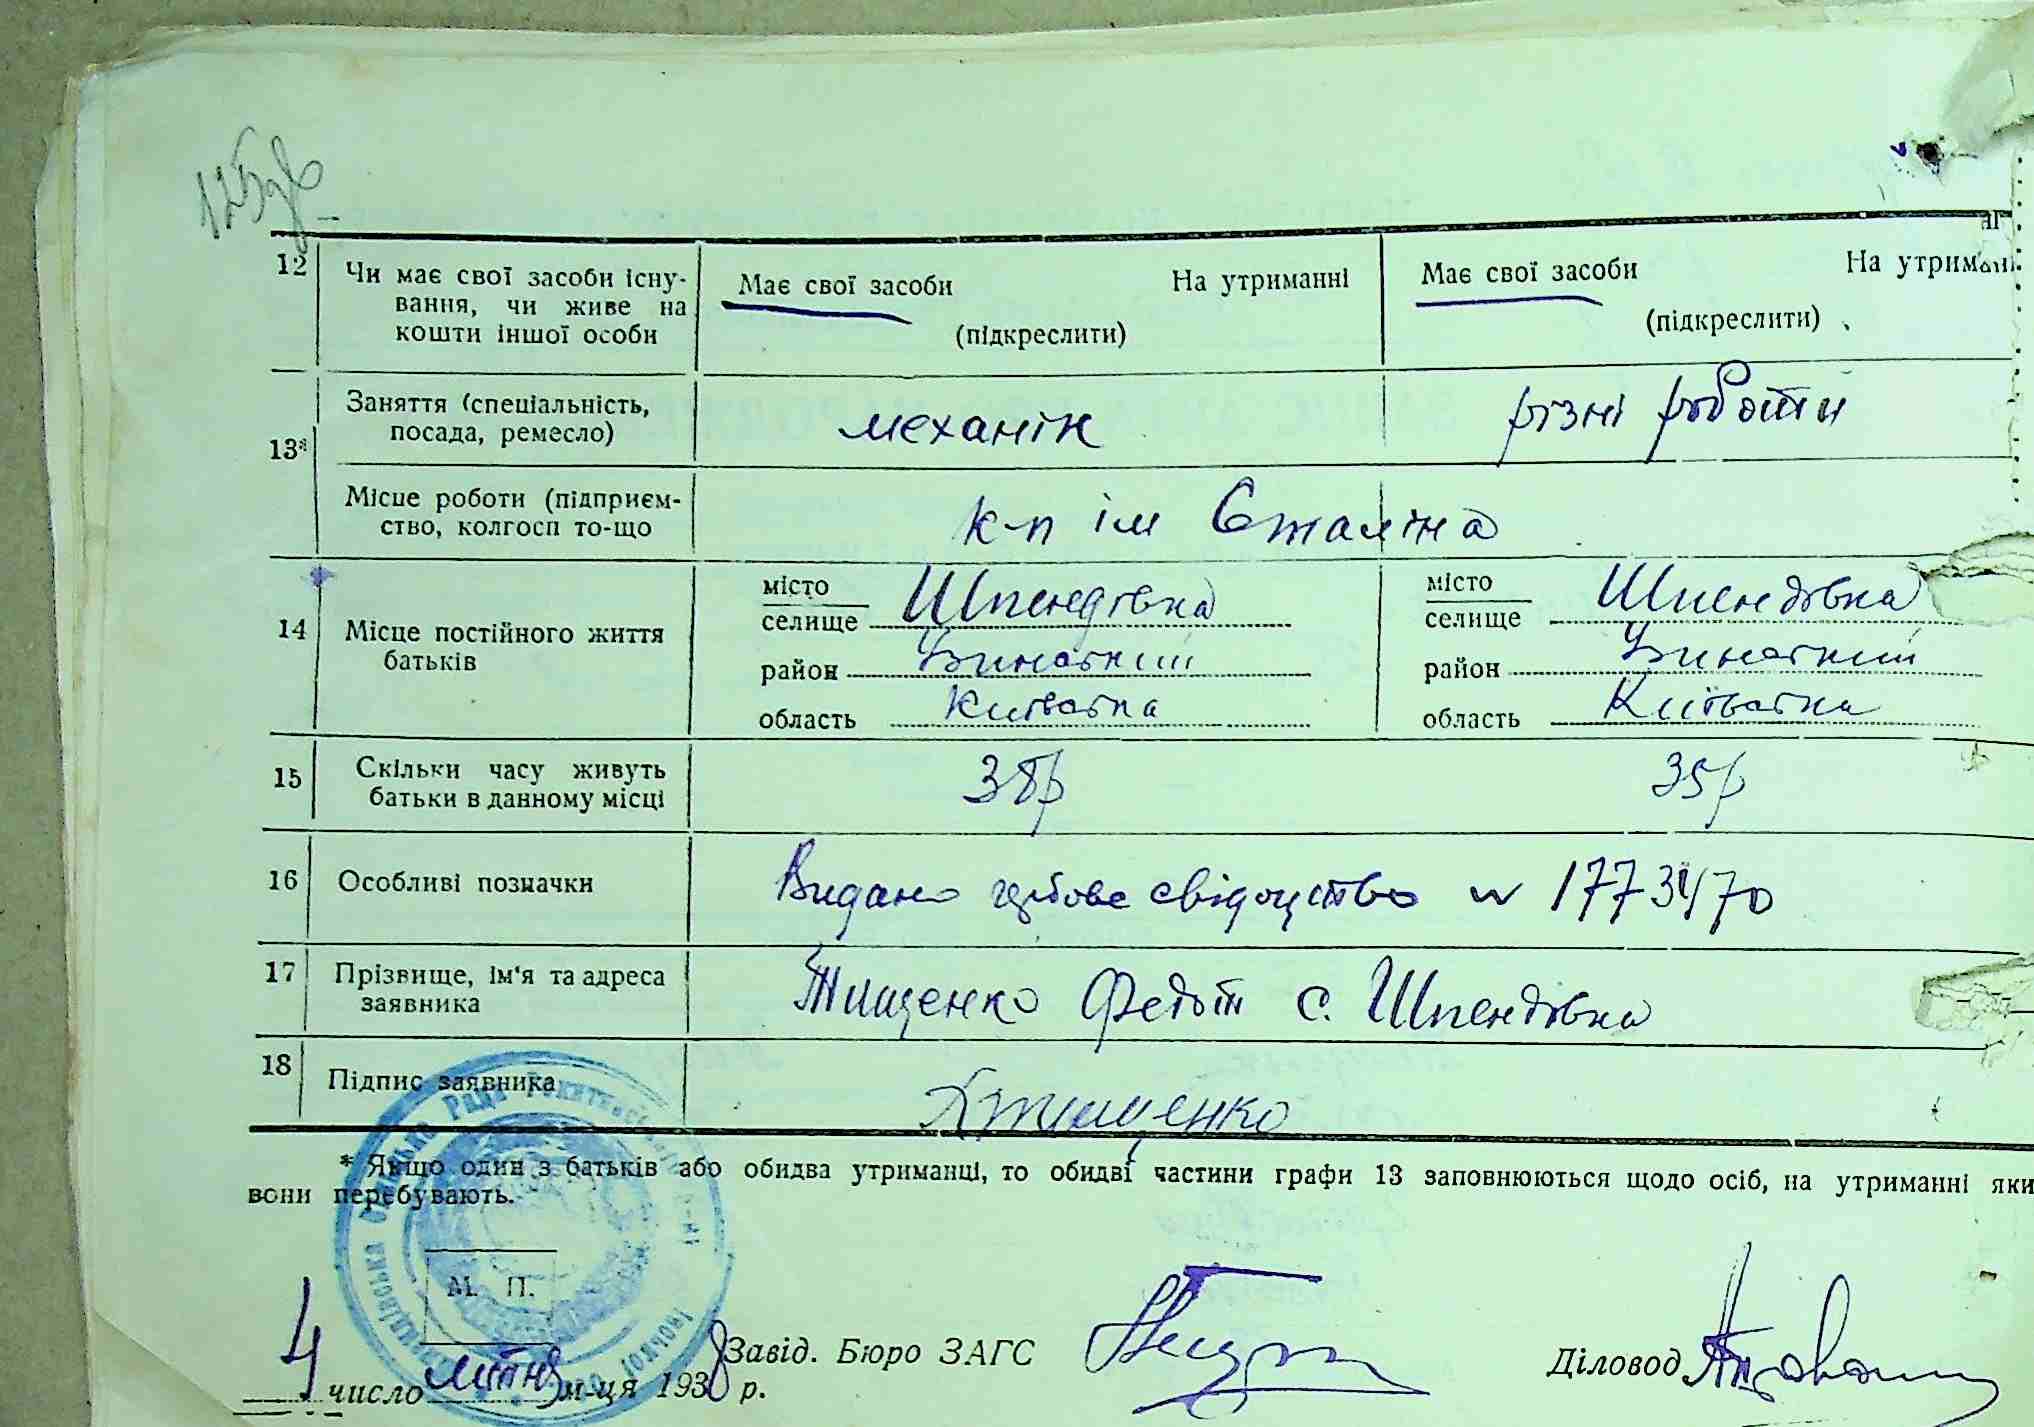 125зв
12 Чи має свої засоби існу- Має свої засоби На утриманні Має свої засоби На утриманні
вання, чи живе на
кошти іншої особи (підкреслити) (підкреслити)
Заняття (спеціальність, механік різні роботи
13* посада, ремесло)
Місце роботи (підприєм- к-п ім Сталіна
ство, колгосп то-що
місто Шпендівка місто Шпендівка
14 Місце постійного життя селище селище
батьків район район
область Київська область Київська
15 Скільки часу живуть 38р 35р
батьки в данному місці
16 Особливі позначки Видано гербове свідоцтво № 1773470
17 Прізвище, ім'я та адреса Тищенко Федот с. Шпендівка
заявника
18 Підпис заявника Тищенко
* Якщо один з батьків або обидва утриманці, то обидві частини графи 13 заповнюються щодо осіб, на утриманні яки
вони перебувають.
М. П.
Завід. Бюро ЗАГС Діловод
4 число лютня м-ця 1938 р.